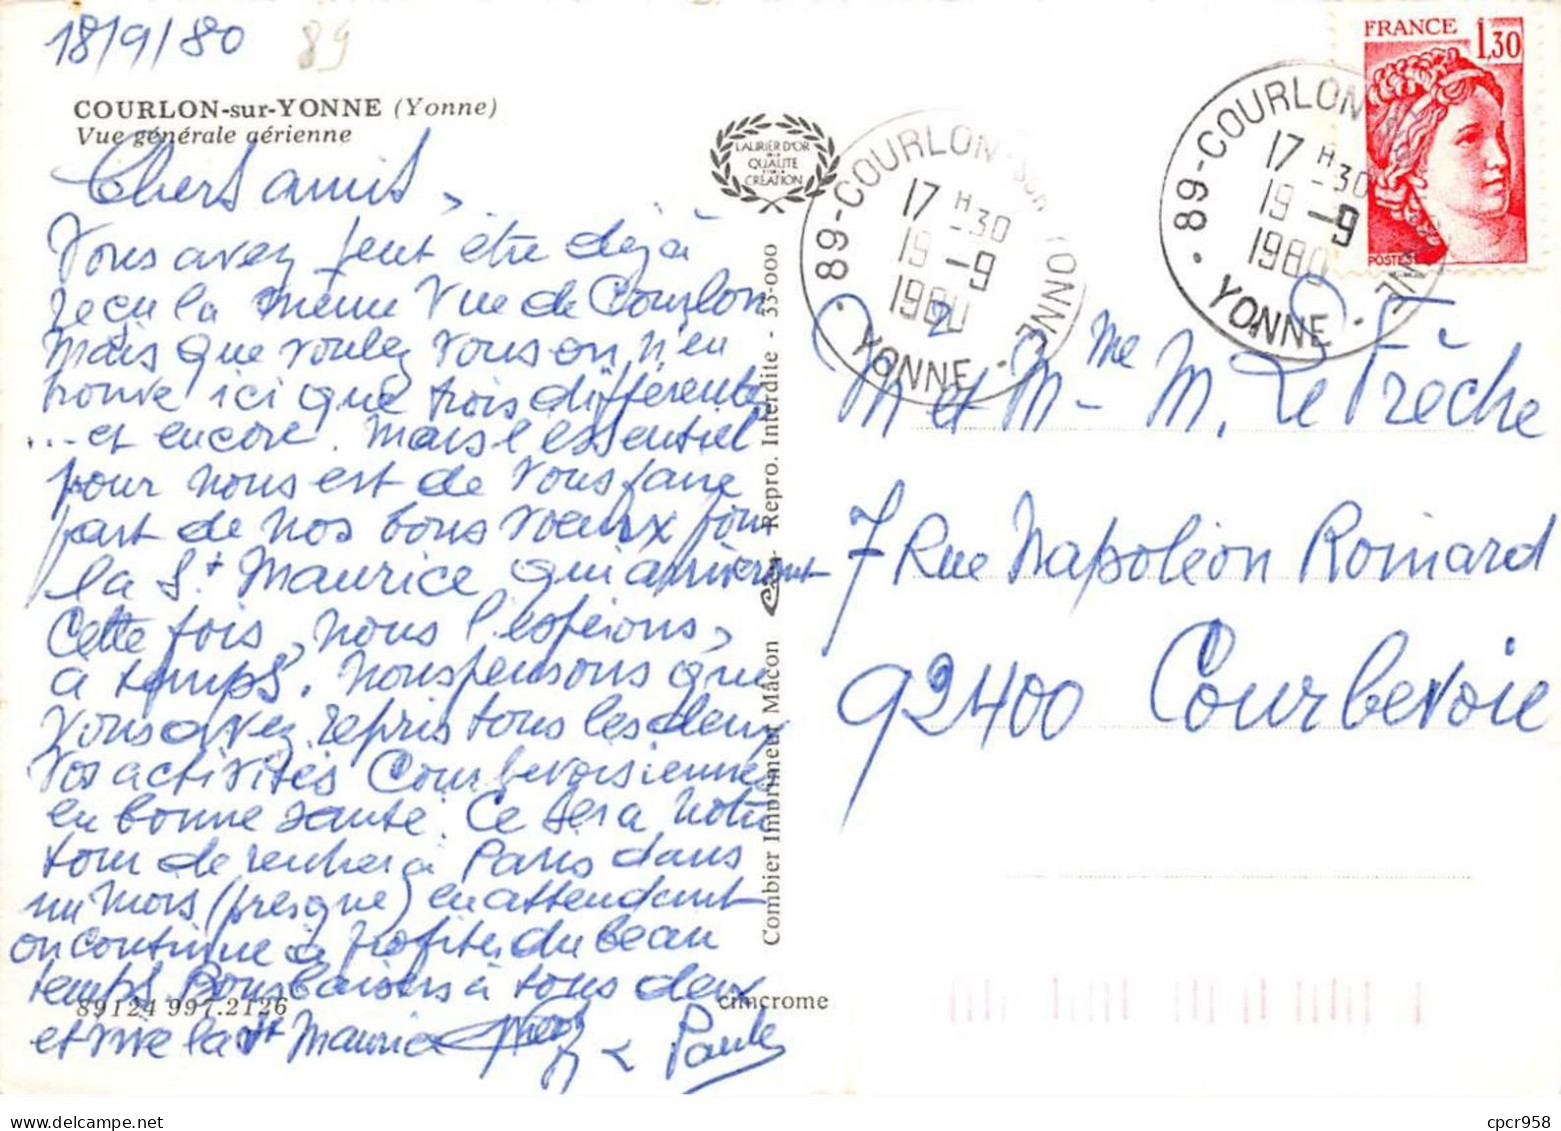 18/9/80 89
COURLON-sur-YONNE (Yonne)
Vue générale aérienne
Chers amis,
Vous avez peut être déjà
reçu la même vue de Courlon
Mais que voulez vous on n'en
trouve ici que trois différentes
... et encore. Mais l'essentiel
pour nous est de vous faire
part de nos bons vœux pour
la St Maurice qui arriveront
Cette fois, nous l'espérons,
à temps. Nous pensons que
vous avez repris tous les deux
vos activités Courbevoisiennes
en bonne santé. Ce sera notre
tour de rentrer à Paris dans
un mois (presque) en attendant
on continue à profiter du beau
temps. Bons baisers à tous deux
et vive la St Maurice
& Paule
89124 997.2126
cimcrome
LAURIER D'OR
DE LA
QUALITÉ
ET DE LA
CRÉATION
Combier Imprimeur Mâcon
Repro. Interdite - 35-000
89-COURLON-SUR-YONNE
17 H 30
19 -9
1980
YONNE
89-COURLON
17 H 30
19 -9
1980
YONNE
FRANCE 1,30
POSTES
M et Mme M. Le Frèche
7 Rue Napoléon Roinard
92400 Courbevoie
delcampe.net
cpcr958